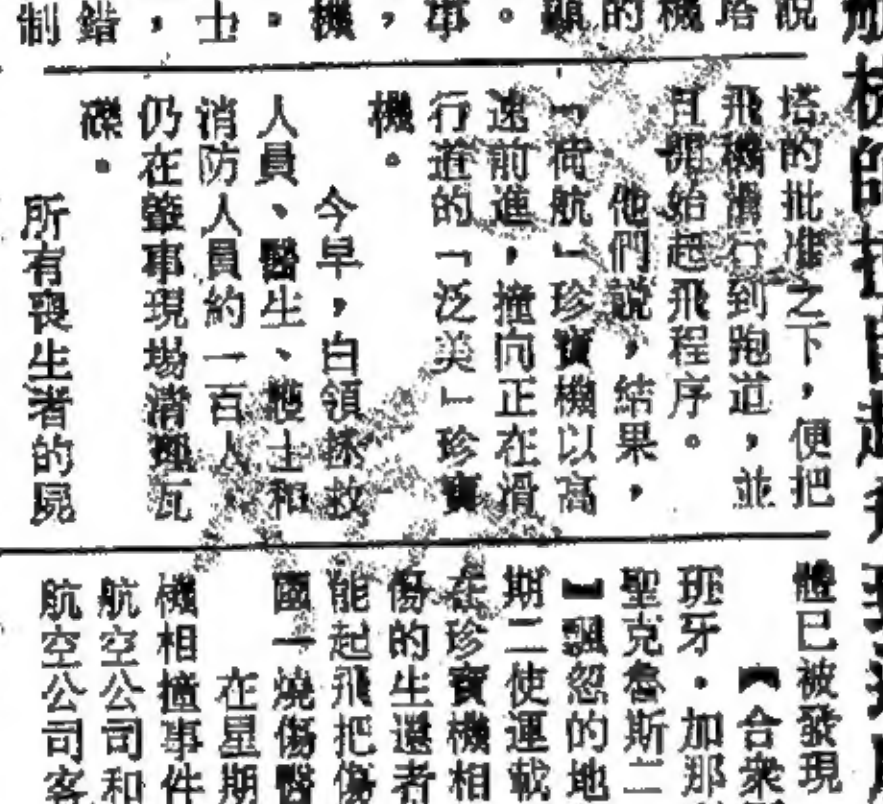 說
塔
機
的
。
，
機
。
士
，
錯
制
塔的批准之下，便把
飛機滑行到跑道，並
且開始起飛程序。
他們說，結果，
「荷航」珍寶機以高
速前進，撞向正在滑
行道的「泛美」珍寶
機。
今早，白領拯救
人員、醫生、護士和
消防人員約一百人，
仍在肇事現場清理瓦
礫。
所有喪生者的屍
體已被發現
【合衆
班牙・加那
聖克魯斯二
】飄忽的地
期二使運載
在珍寶機相
傷的生還者
能起飛把傷
國一燒傷醫
在星期
機相撞事件
航空公司和
航空公司客